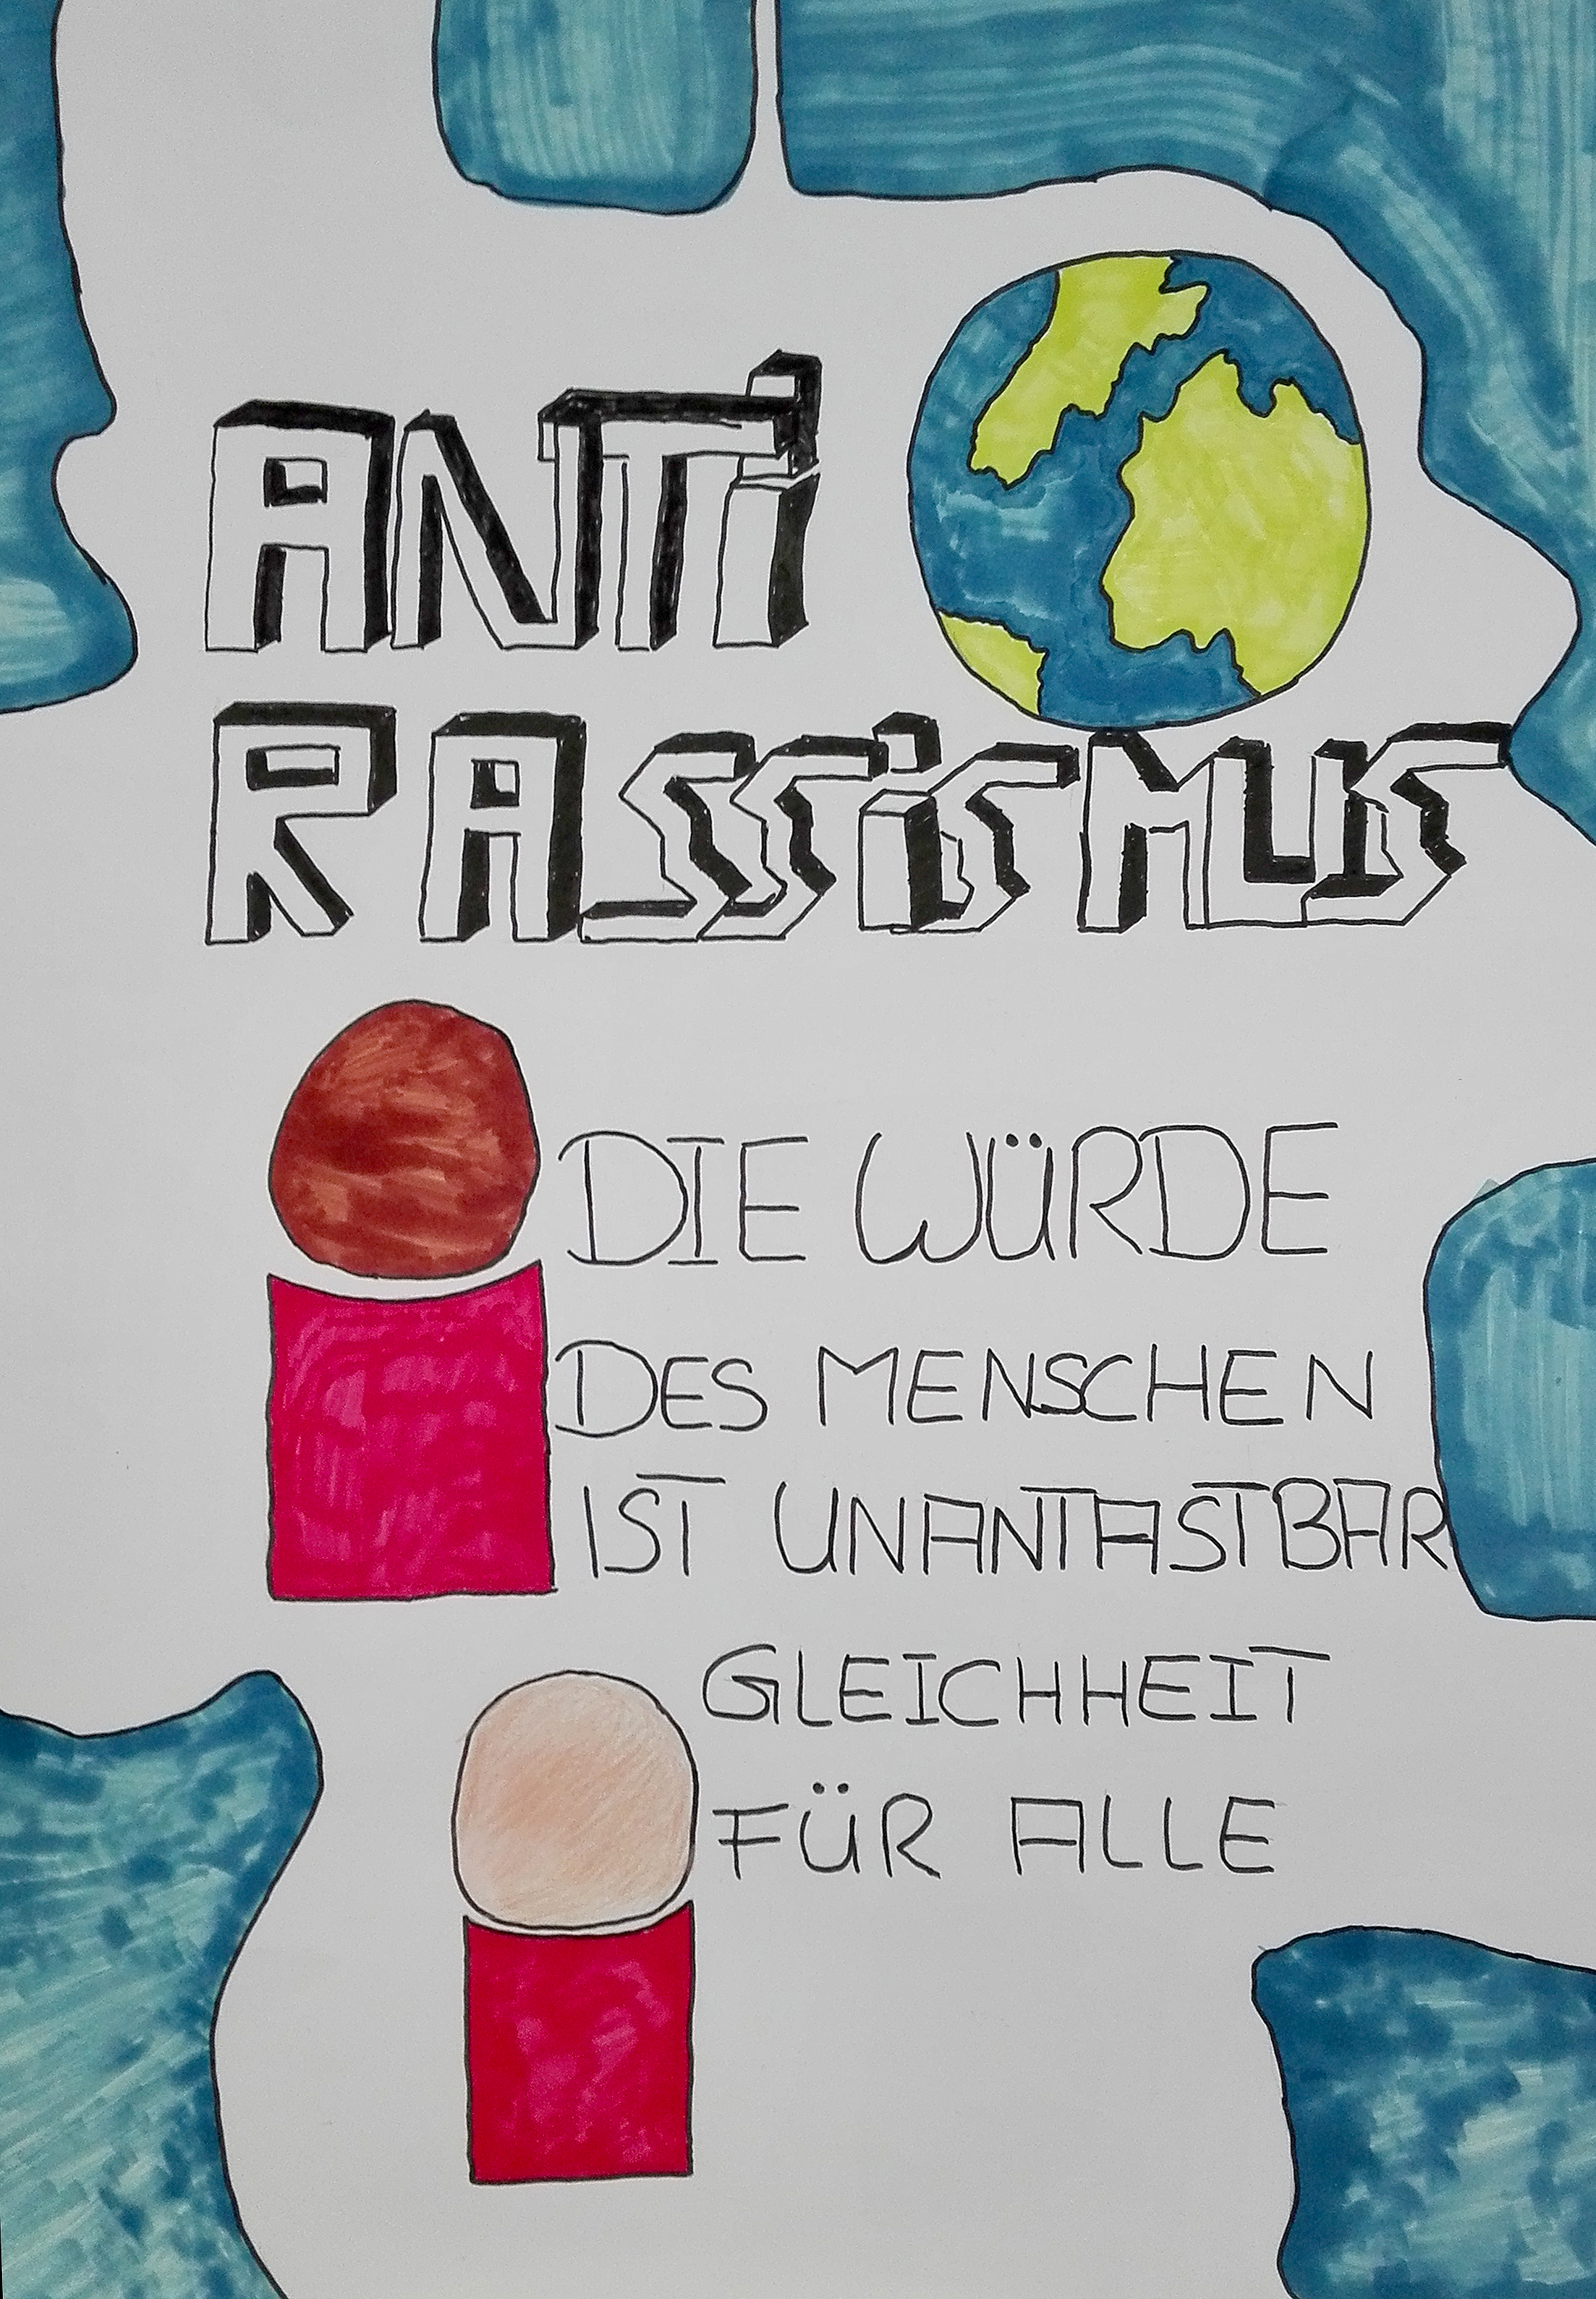 ANTi
RASSiSMUS
DIE WÜRDE
DES MENSCHEN
IST UNANTASTBAR
GLEICHHEIT
FÜR ALLE